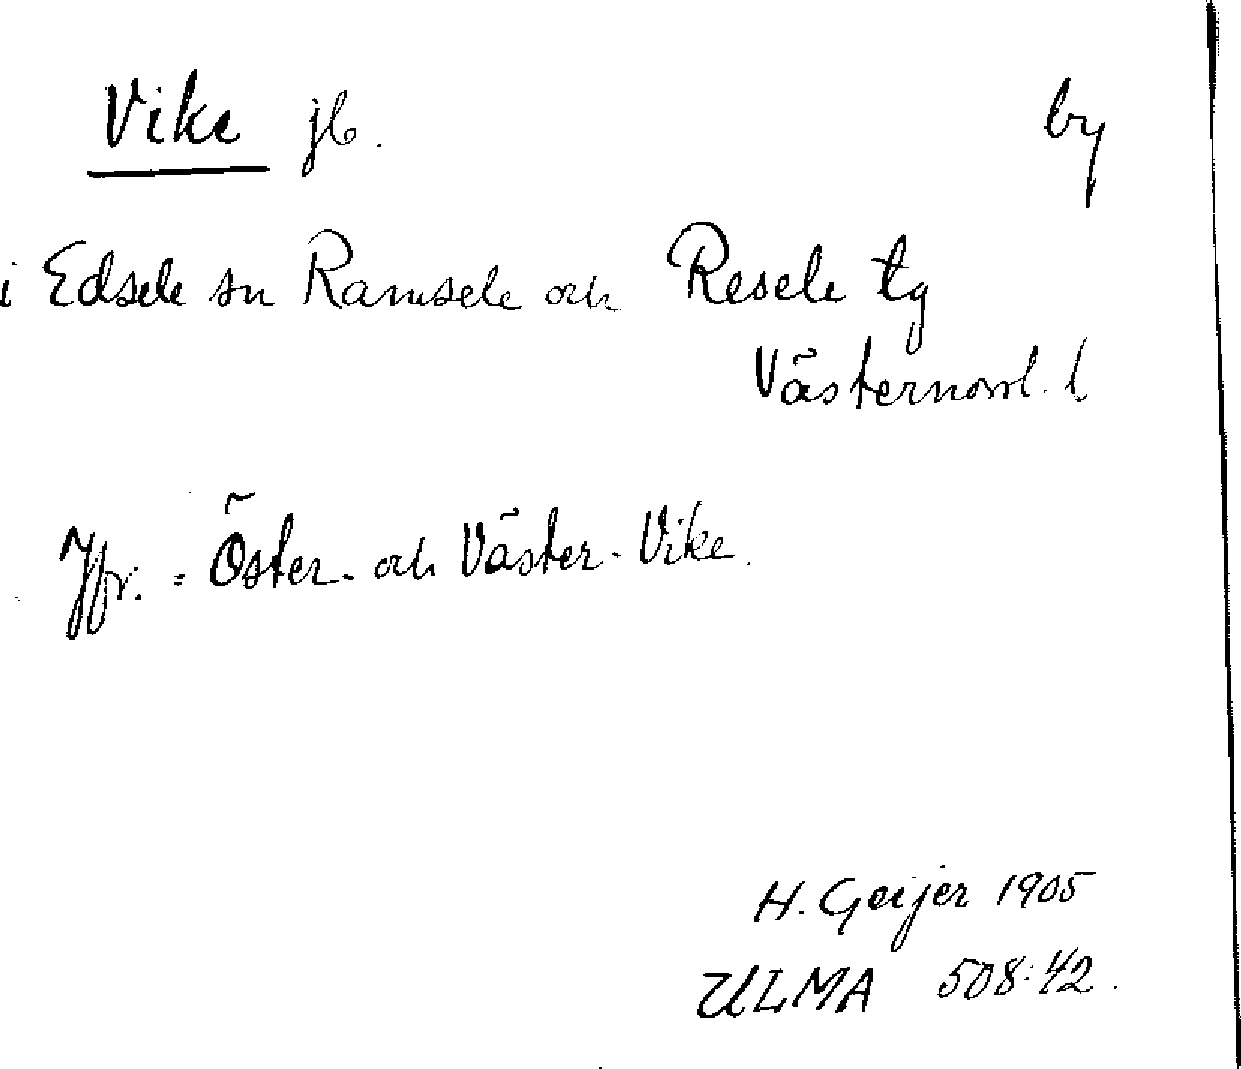 Vike jb. by
i Edsele sn Ramsele och Resele tg
Västernorrl. l
Jfr. = Öster- och Väster-Vike.
H. Geijer 1905
ULMA 508:42.